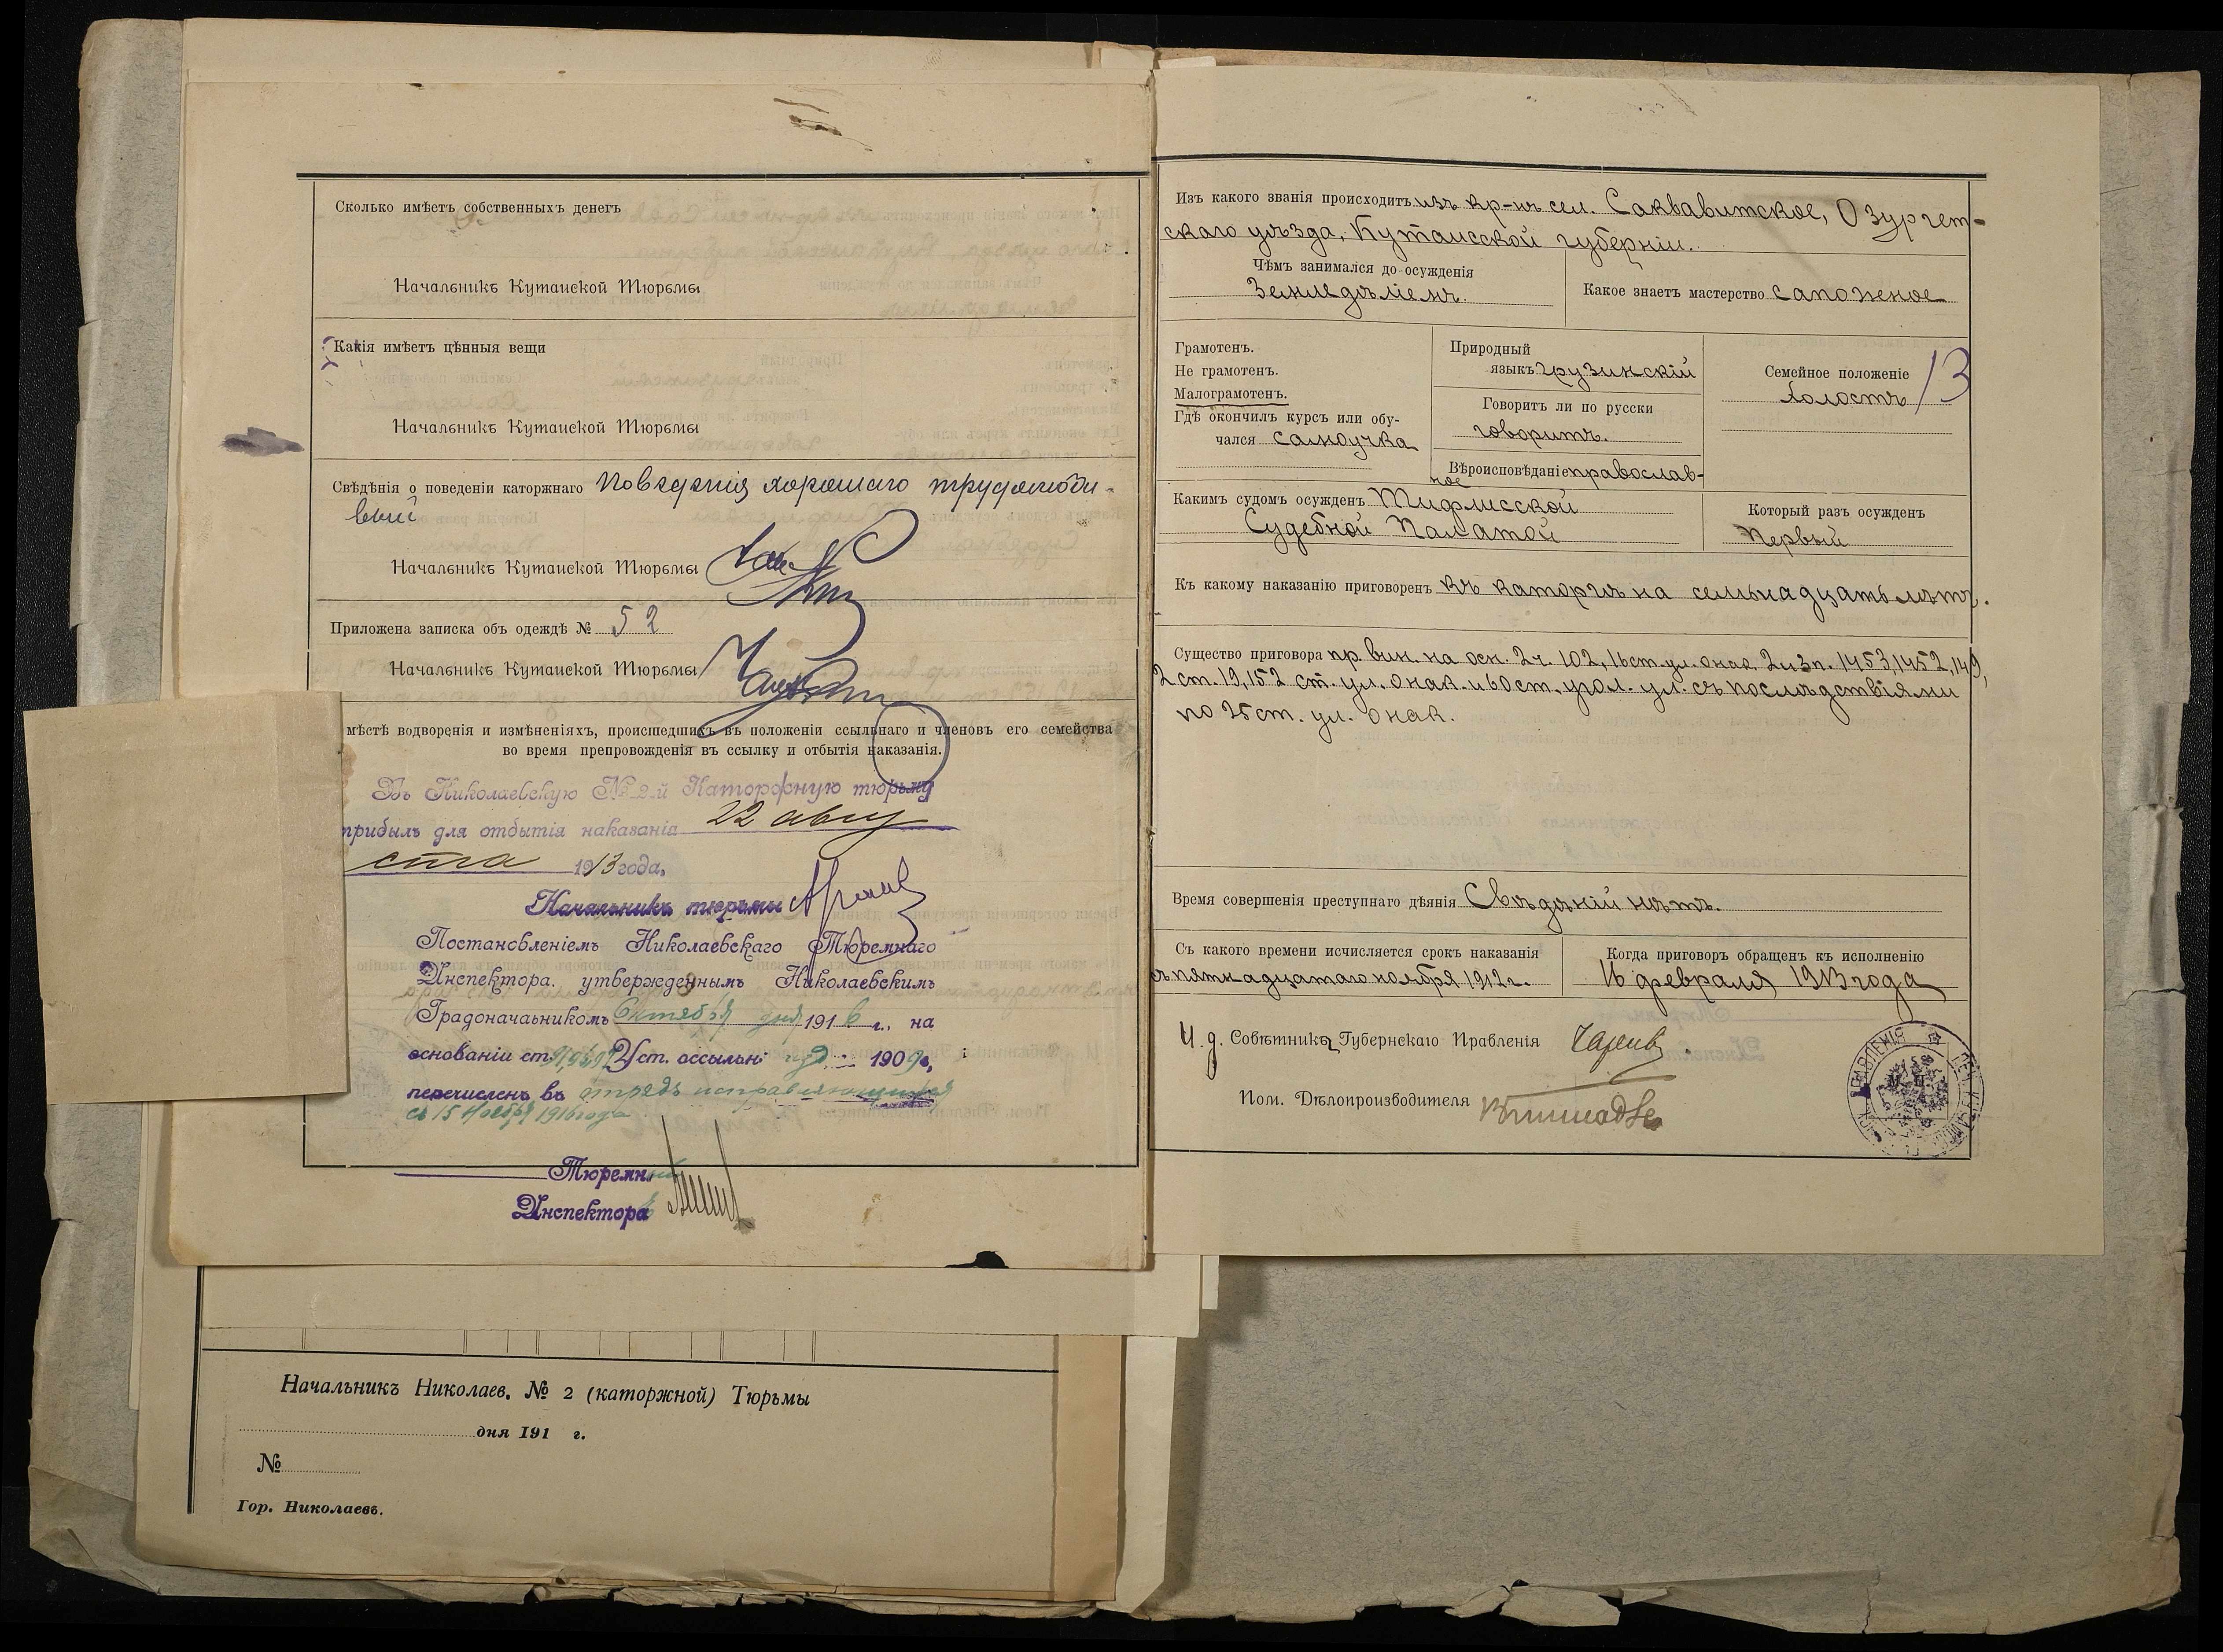 Сколько имѣетъ собственныхъ денегъ
Начальникъ Кутаиской Тюрьмы
Какія имѣетъ цѣнныя вещи
Начальникъ Кутаиской Тюрьмы
Свѣдѣнія о поведеніи каторжнаго Поведенія хорошаго трудолюби-
вый
Начальникъ Кутаиской Тюрьмы
Приложена записка объ одеждѣ № 52
Начальникъ Кутаиской Тюрьмы
мѣстѣ водворенія и измѣненіяхъ, происшедшихъ въ положеніи ссыльнаго и членовъ его семейства
во время препровожденія въ ссылку и отбытія наказанія.
Въ Николаевскую № 2-й Каторжную тюрьму
прибылъ для отбытія наказанія 22 авгу
ста 1913 года.
Начальникъ тюрьмы
Постановленіемъ Николаевскаго Тюремнаго
Инспектора, утвержденнымъ Николаевскимъ
Градоначаьникомъ Октября дня 1916 г., на
основаніи ст. Уст. ссыльн. изд. 1909 г.,
перечисленъ въ отрядъ исправляющихся
съ 15 Ноября 1916 года
Тюремный
Инспекторъ
Начальникъ Николаев. № 2 (каторжной) Тюрьмы
дня 191 г.
№
Гор. Николаевъ.
Изъ какого званія происходитъ изъ кр-нъ сел. Саквавитское, Озургет-
скаго уѣзда, Кутаисской губерніи.
Чѣмъ занимался до осужденія
Земледѣліемъ.
Какое знаетъ мастерство сапожное
Грамотенъ.
Не грамотенъ.
Малограмотенъ.
Гдѣ окончилъ курсъ или обу-
чался самоучка
Природный
языкъ грузинскій
Говоритъ ли по русски
говоритъ.
Вѣроисповѣданіе православ-
ное
Семейное положеніе
холостъ
13
Какимъ судомъ осужденъ Тифлисской
Судебной Палатой
Который разъ осужденъ
Первый
Къ какому наказанію приговоренъ къ каторгѣ на семьнадцать лѣтъ.
Существо приговора пр. вин. на осн. 2 ч. 102, 16 ст. ул. о нак. 2 и 3 п. 1453, 1452, 149,
2 ст. 19, 152 ст. ул. о нак. и 60 ст. угол. ул. съ послѣдствіями
по 25 ст. ул. о нак.
Время совершенія преступнаго дѣянія Свѣдѣній нѣтъ.
Съ какого времени исчисляется срокъ наказанія
съ пятнадцатаго ноября 1912 г.
Когда приговоръ обращенъ къ исполненію
16 февраля 1913 года
И. д. Совѣтника Губернскаго Правленія
Пом. Дѣлопроизводителя